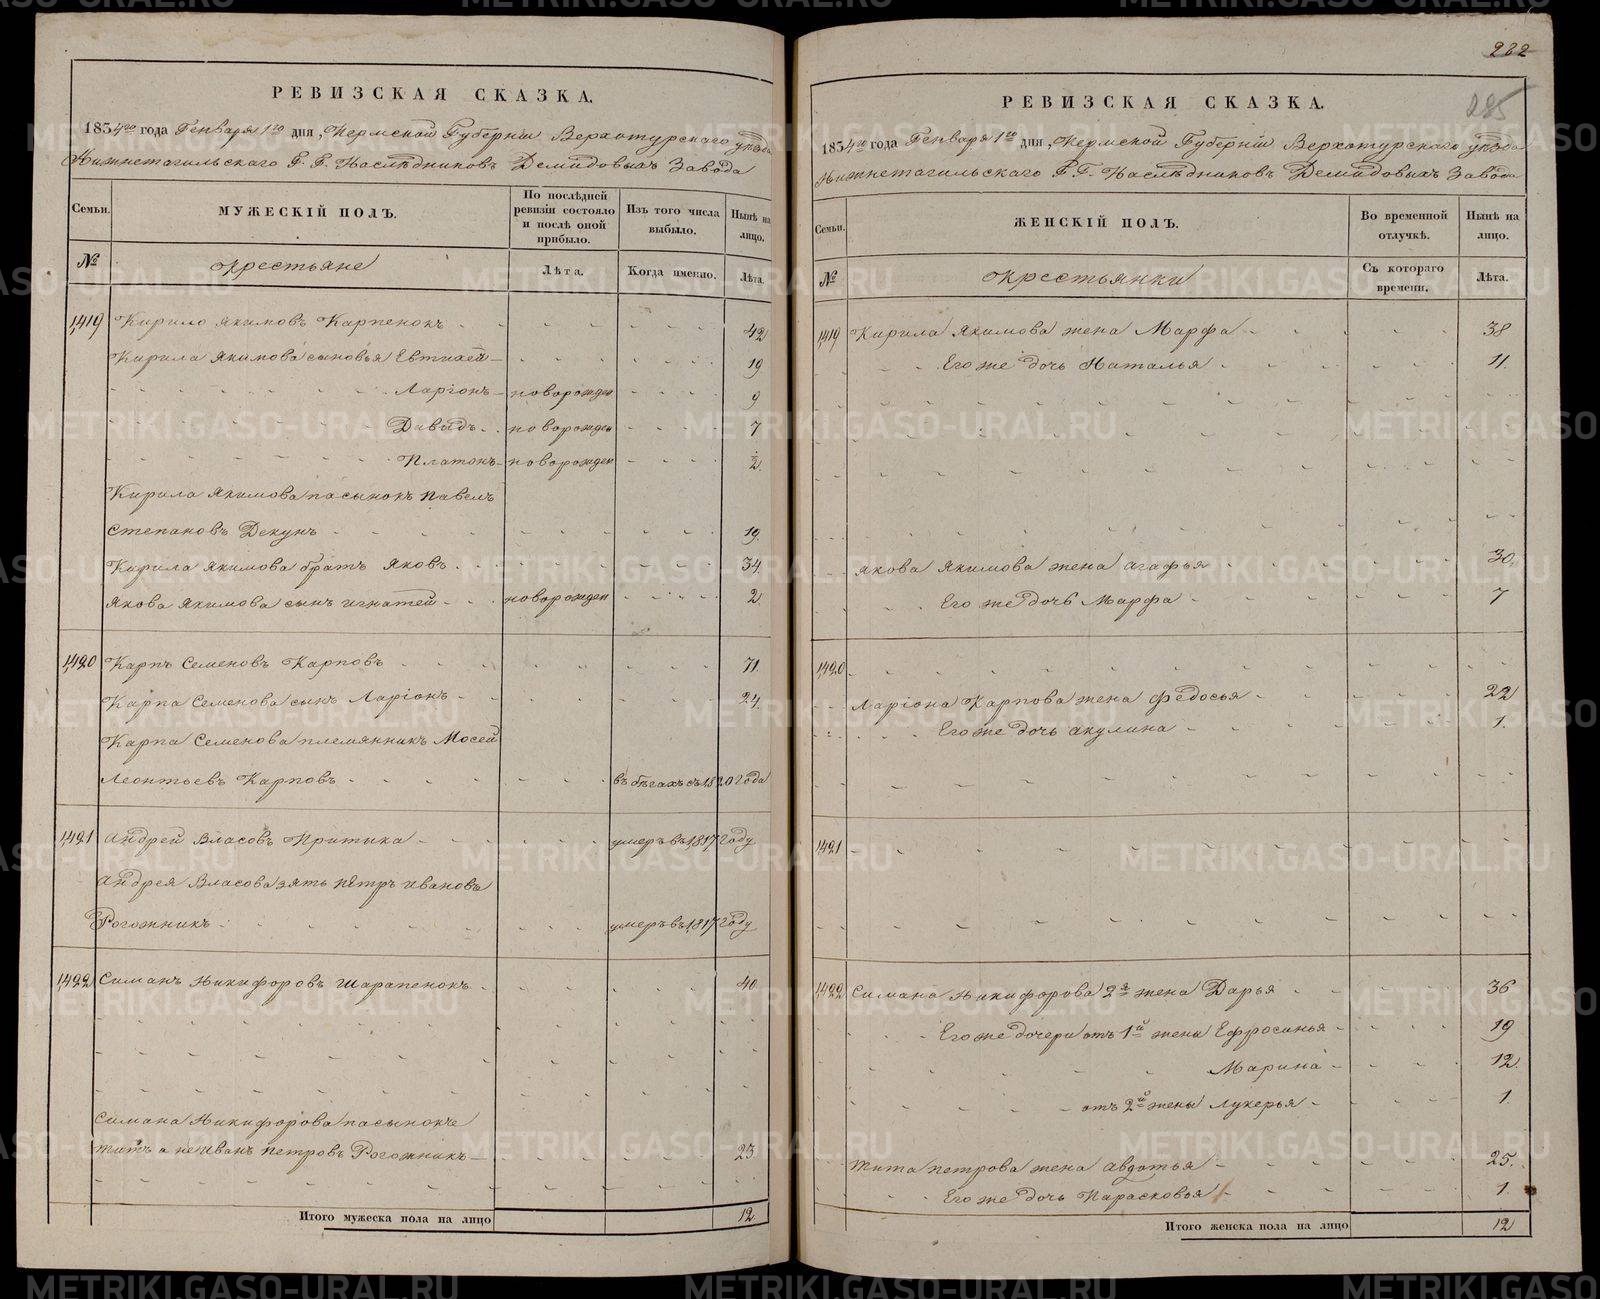 РЕВИЗСКАЯ СКАЗКА.
1834го года Генваря 1го дня, Пермской Губерніи Верхотурскаго уѣзда
Нижнетагильскаго Г. Г. Наслѣдниковъ Демидовыхъ Завода
Семьи. МУЖЕСКІЙ ПОЛЪ. По послѣдней ревизіи состояло и послѣ оной прибыло. Изъ того числа выбыло. Нынѣ на лицо.
№ крестьяне Лѣта. Когда именно. Лѣта.
1,419 Кирило Якимовъ Карпенокъ 42
Кирила Якимова сыновья Евтихей 19
Ларіонъ новорожден 9
Давыдъ новорожден 7
Платонъ новорожден ½
Кирила Якимова пасынокъ Павелъ
Степановъ Декунъ 19.
Кирила Якимова братъ Яковъ 34.
Якова Якимова сынъ Игнатей новорожден 2
1,420 Карпъ Семеновъ Карповъ 71.
Карпа Семенова сынъ Ларіонъ 24.
Карпа Семенова племянникъ Мосей
Леонтьевъ Карповъ въ бѣгахъ съ 1820 года
1,421 Андрей Власовъ Притика умеръ въ 1,817 году
Андрея Власова зять Петръ Ивановъ
Рогожникъ умеръ въ 1,817 году
1,422 Симанъ Никифоровъ Шарапенокъ 40
Симана Никифорова пасынокъ
Титъ а не Иванъ Петровъ Рогожникъ 23.
Итого мужеска пола на лицо 12
232
285
РЕВИЗСКАЯ СКАЗКА.
1834го года Генваря 1го дня, Пермской Губерніи Верхотурскаго уѣзда
Нижнетагильскаго Г. Г. Наслѣдниковъ Демидовыхъ Завода
Семьи. ЖЕНСКІЙ ПОЛЪ. Во временной отлучкѣ. Нынѣ на лицо.
№ крестьянки Съ котораго времени. Лѣта.
1,419 Кирила Якимова жена Марфа 38
Его же дочь Наталья 11.
Якова Якимова жена Агафья 30.
Его же дочь Марфа 7
1,420
Ларіона Карпова жена Федосья 22
Его же дочь Акулина 1.
1,421
1,422 Симана Никифорова 2я жена Дарья 36
Его же дочери отъ 1й жены Ефросинья 19
Марина 12.
отъ 2й жены Лукерья 1.
Тита Петрова жена Авдотья 25.
Его же дочь Парасковья 1.
Итого женска пола на лицо 12
METRIKI.GASO-URAL.RU